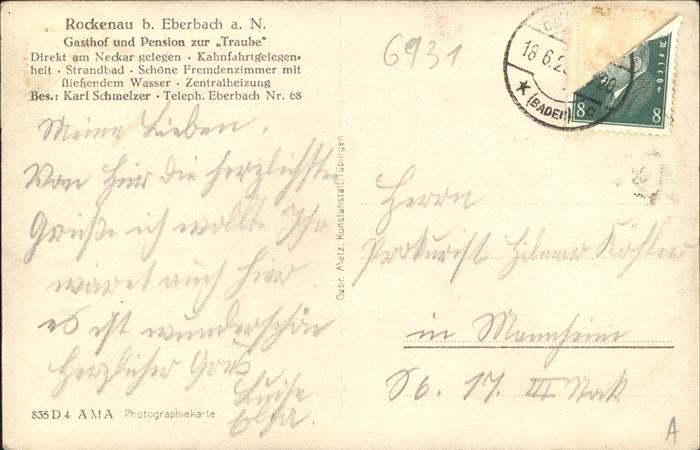 Rockenau b. Eberbach a. N.
Gasthof und Pension zur „Traube"
Direkt am Neckar gelegen · Kahnfahrtgelegen-
heit · Strandbad · Schöne Fremdenzimmer mit
fließendem Wasser · Zentralheizung
Bes.: Karl Schmelzer · Teleph. Eberbach Nr. 68
6931
18.6.2
20
(BADEN)
c
8 8
Meine Lieben,
Von hier die herzlichsten
Grüße ich wollte Ihr
wäret auch hier
es ist wunderschön
Herzlicher Grus
Luise
Elsa.
Gebr. Metz, Kunstanstalt, Tübingen
Herrn
Prokurist Hilmar Köhler
in Mannheim
S 6. 17. III Stock
835 D 4 AMA Photographiekarte
A